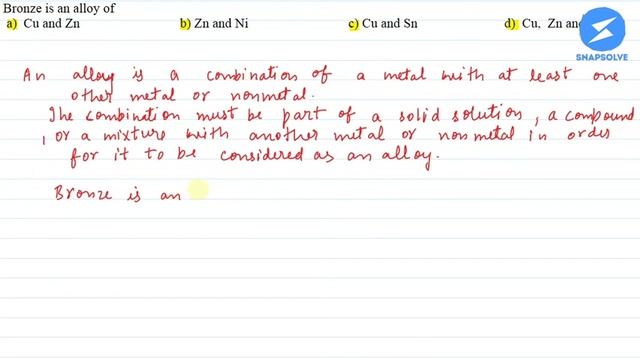 Bronze is an alloy of
a) Cu and Zn b) Zn and Ni c) Cu and Sn d) Cu, Zn and
SNAPSOLVE
An alloy is a combination of a metal with at least one
other metal or nonmetal.
The combination must be part of a solid solution, a compound
, or a mixture with another metal or nonmetal in order
for it to be considered as an alloy.
Bronze is an